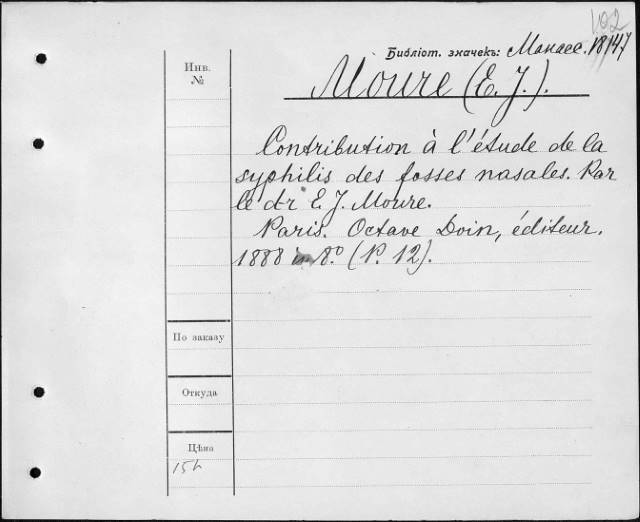 102
Библіот. значекъ: Манасс. 18147
Инв.
№
Moure (E. J.).
Contribution à l'étude de la
syphilis des fosses nasales. Par
le dr E. J. Moure.
Paris. Octave Doin, éditeur.
1888 in 8.º (P. 12).
По заказу
Откуда
Цѣна